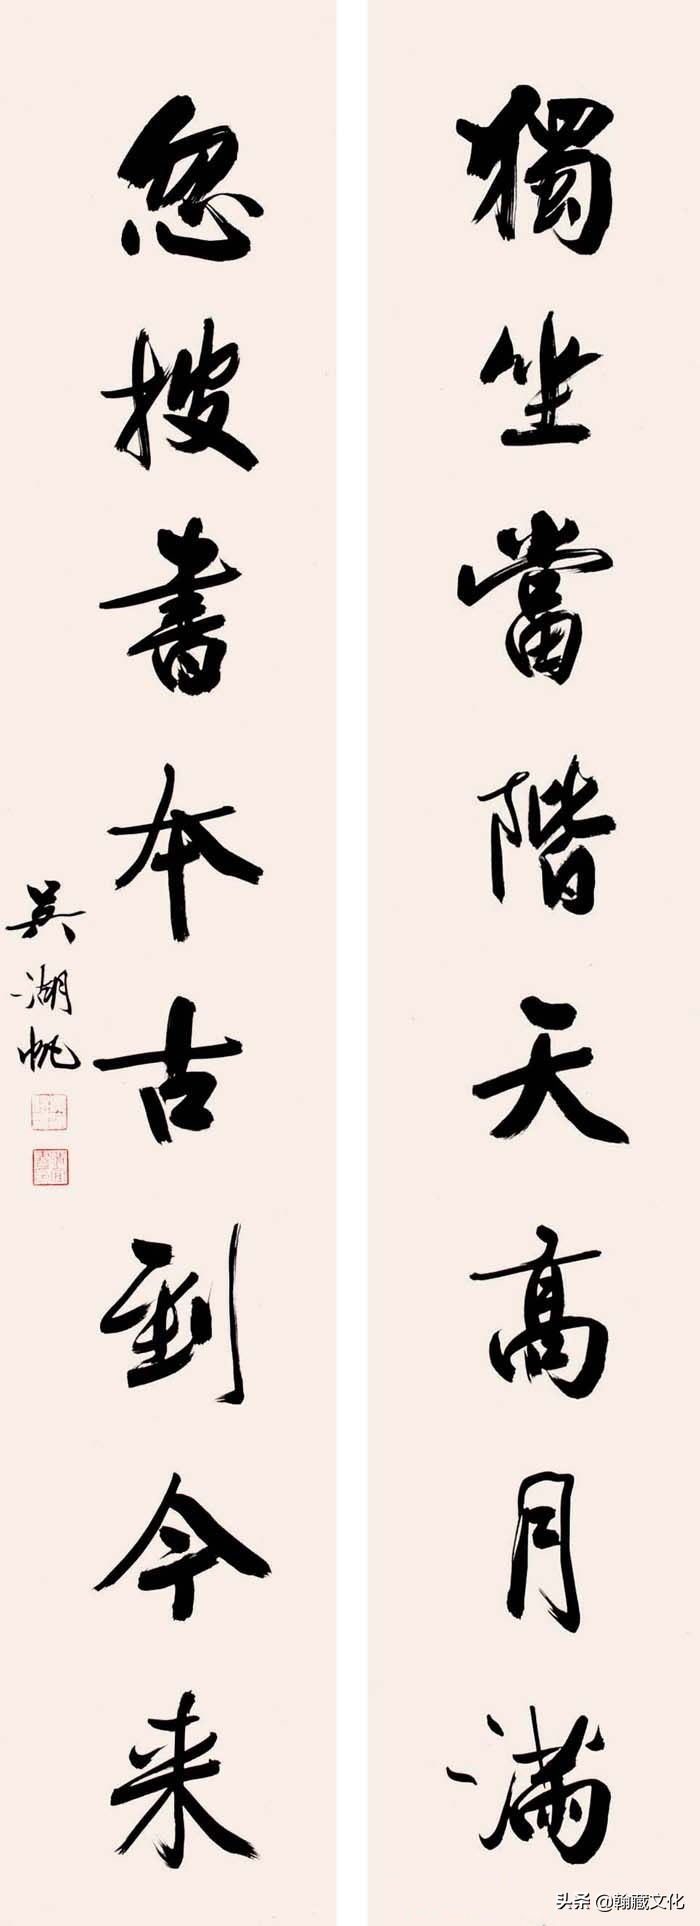 獨坐當階天高月滿
忽搜書本古到今来
吳湖帆
头条 @翰藏文化